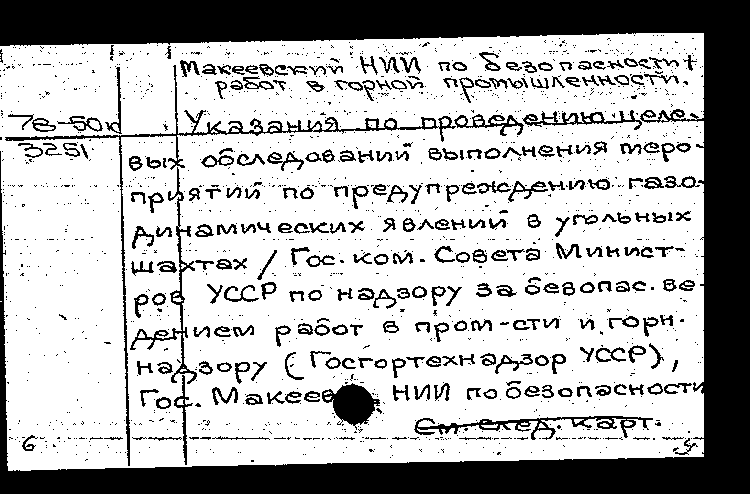 Макеевский НИИ по безопасности
работ в горной промышленности.
78-50к
3251
Указания по проведению целе-
вых обследований выполнения меро-
приятий по предупреждению газо-
динамических явлений в угольных
шахтах / Гос. ком. Совета Минист-
ров УССР по надзору за безопас. ве-
дением работ в пром-сти и горн.
надзору (Госгортехнадзор УССР),
Гос. Макеев НИИ по безопасности
См. след. карт.
6